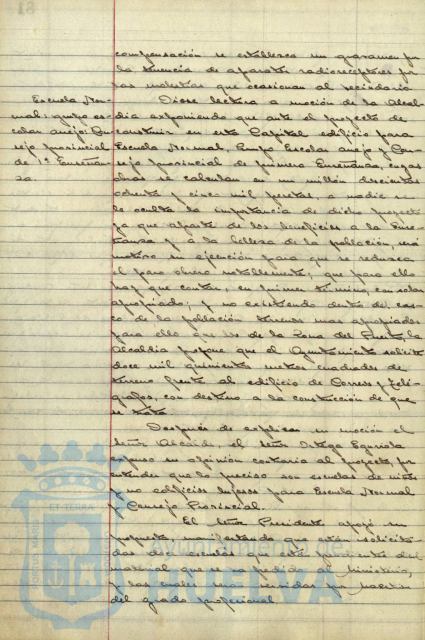 compensación se establezca un gravamen por
la tenencia de aparatos radioreceptores por
las molestias que ocasionan al vecindario
Escuela Nor-
mal: grupo es-
colar anejo: Con-
sejo provincial
de 1ª Enseñan-
za.
Diose lectura a moción de la Alcal-
día exponiendo que ante el proyecto de
construir en esta Capital edificio para
Escuela Normal, Grupo Escolar anejo y Con-
sejo provincial de primera Enseñanza, cuyas
obras se calculan en un millón doscientas
ochenta y cinco mil pesetas, a nadie se
le oculta la importancia de dicho proyecto
ya que aparte de los beneficios a la Ense-
ñanza y a la belleza de la población, será
motivo su ejecución para que se reduzca
el paro obrero notablemente; que para ello
hay que contar, en primer término, con solar
apropiado; y no existiendo dentro del cas-
co de la población terrenos mas apropiados
para ello que los de la Zona del Puerto, la
Alcaldía propone que el Ayuntamiento solicite
doce mil quinientos metros cuadrados de
terreno frente al edificio de Correos y Telé-
grafos, con destino a la construcción de que
se trata.
Después de explicar su moción el
Señor Alcalde, el Señor Ortega
expuso su opinión contraria al proyecto, por
entender que lo preciso son escuelas de niños
y no edificios lujosos para Escuela Normal
y Consejo Provincial.
El Señor Presidente apoyó su
propuesta, manifestando que están solicita-
das escuelas que están pendientes del
material que se ha pedido al Ministerio,
y las cuales serán servidas por Maestros
del grado profesional.
HUELVA